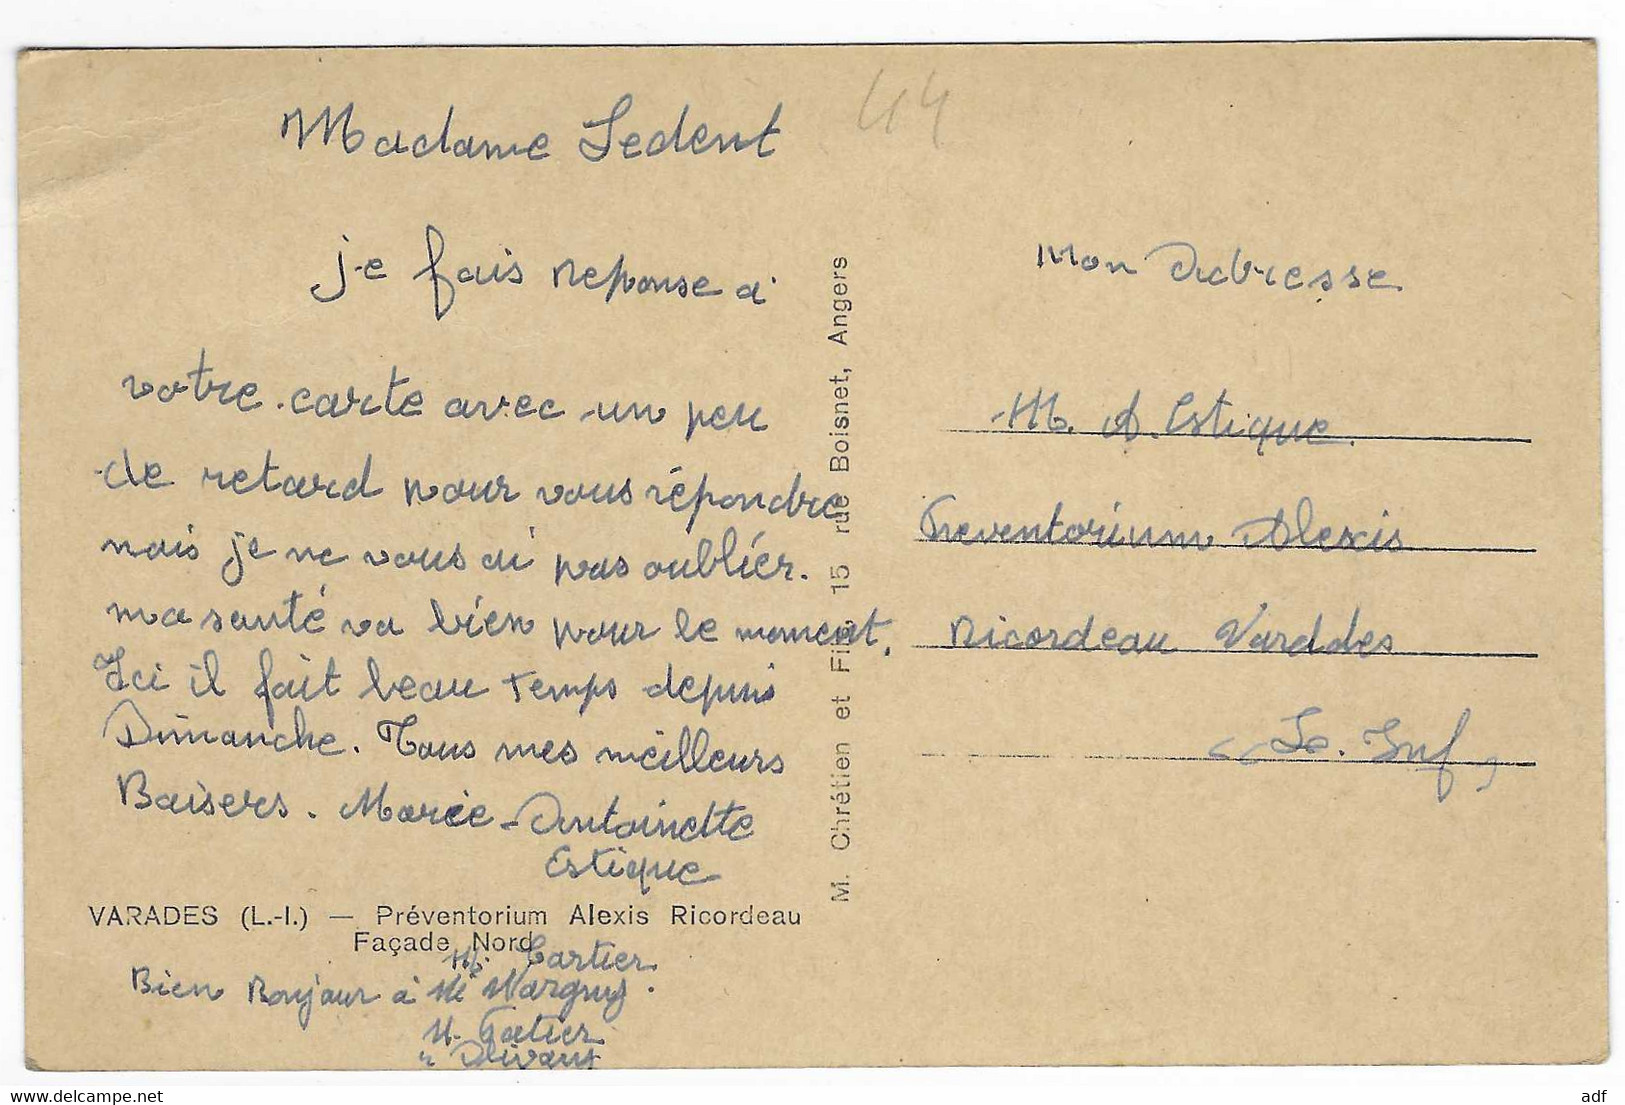 44
Madame Ledent
je fais reponse a
votre carte avec un peu
de retard pour vous répondre
mais je ne vous ai pas oublier.
ma santé va bien pour le moment.
Ici il fait beau temps depuis
Dimanche. Tous mes meilleurs
Baisers. Marie-Antoinette
Estique
VARADES (L.-I.) — Préventorium Alexis Ricordeau
Façade Nord
M. Cartier
Bien Bonjour à
M. Gatier
M. Chrétien et Fils, 15 rue Boisnet, Angers
Mon Adresse
M. A. Estique
Preventorium Alexis
Ricordeau Varades
Le. Inf
www.delcampe.net
adf